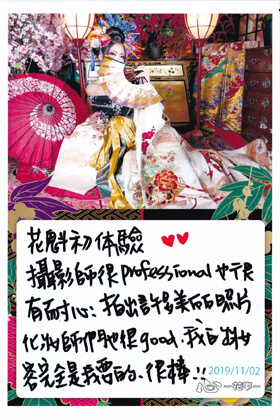 花魁初体驗
攝影師很professional也很
有耐心，拍出許多美的照片
化妝師們也很good，我的妝
容完全是我要的，很棒!!
2019/11/02